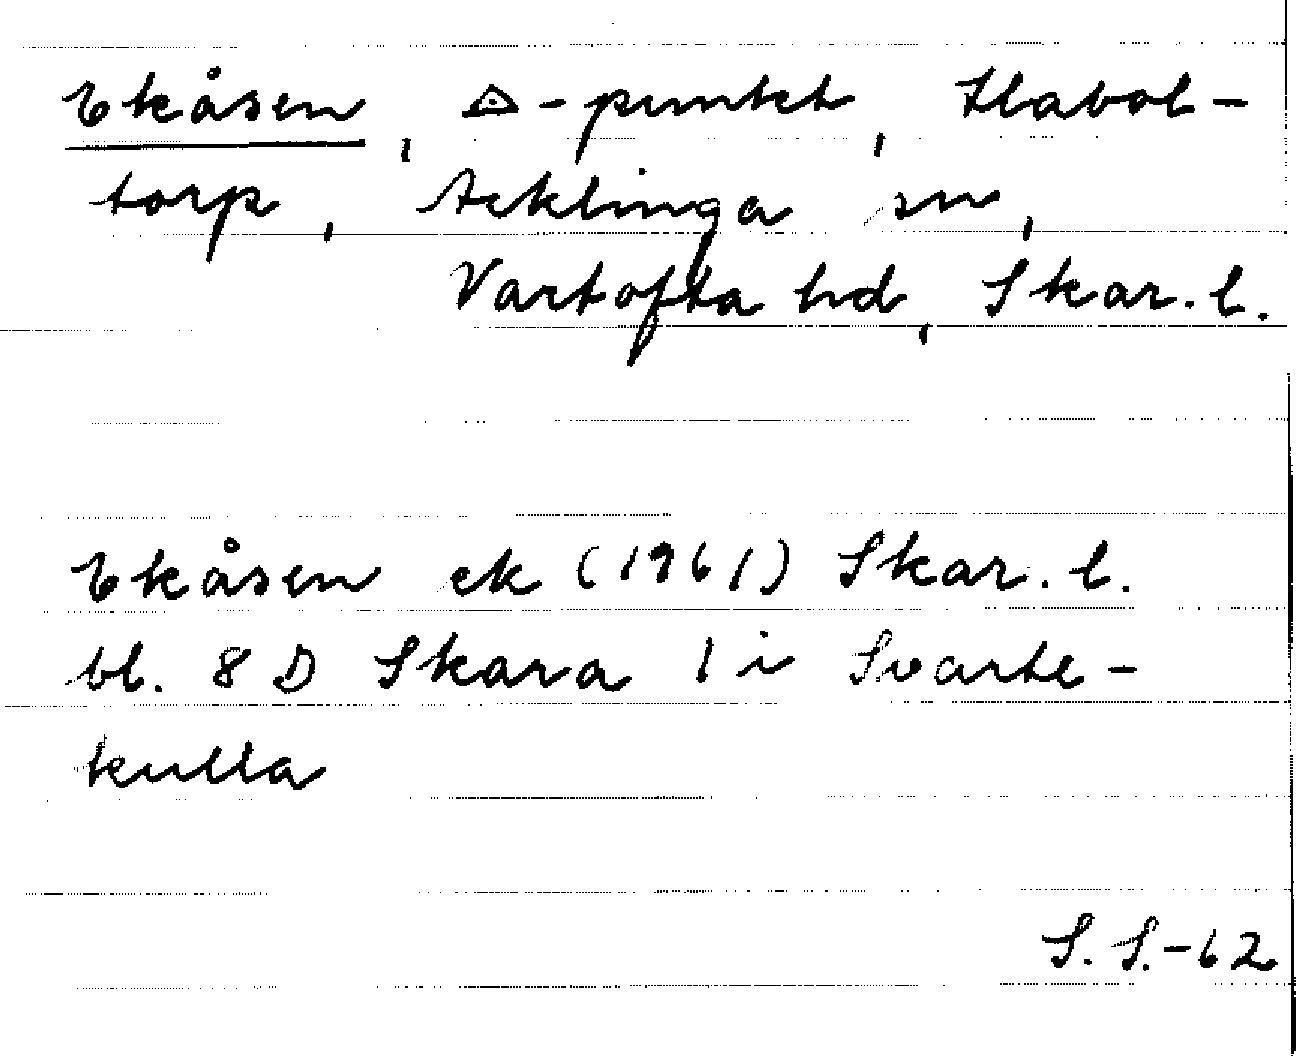 Ekåsen, △-punkt, Flabol-
torp, Acklinga sn,
Vartofta hd, Skar. l.
Ekåsen ek (1961) Skar. l.
bl. 8 D Skara 1 i Svarte-
kulla
S. S. -62